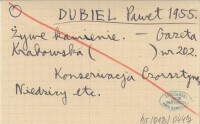 DUBIEL Paweł 1955.
Żywe kamienie. – Gazeta
Krakowska ( ) nr 202.
Konserwacja Czorsztyna,
Niedzicy etc.